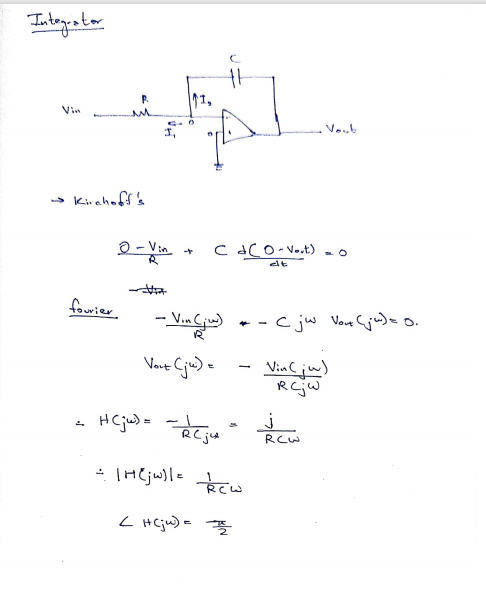 Integrator
C
R
↑I₂
Vin
0
I₁
0
- +
Vout
→ Kirchoff's
0 - Vin / R + C d(0 - Vout) / dt = 0
fourier - Vin(jω) / R - C jω Vout(jω) = 0.
Vout(jω) = - Vin(jω) / RCjω
∴ H(jω) = -1 / RCjω = j / RCω
∴ |H(jω)| = 1 / RCω
∠ H(jω) = π / 2